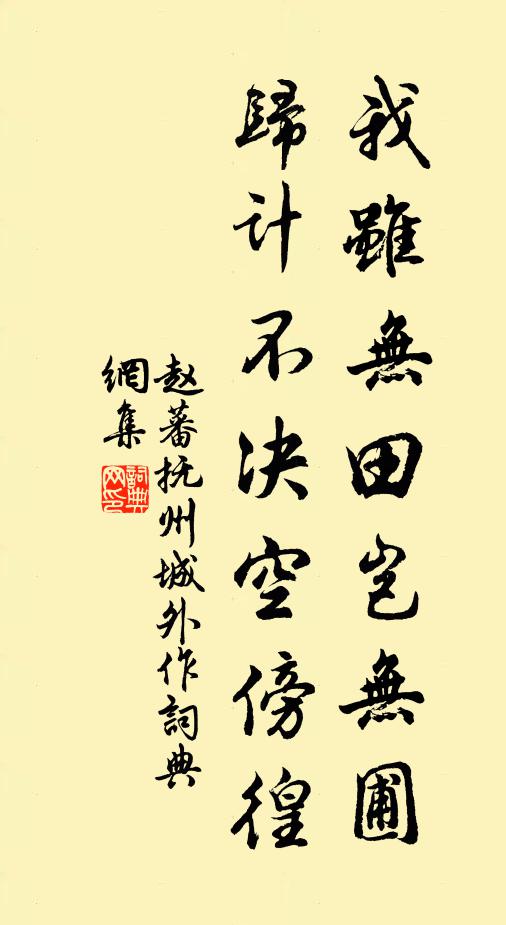 我雖無田豈無圃
歸計不決空傍徨
赵蕃抚州城外作詞典
網集
詞典
网印